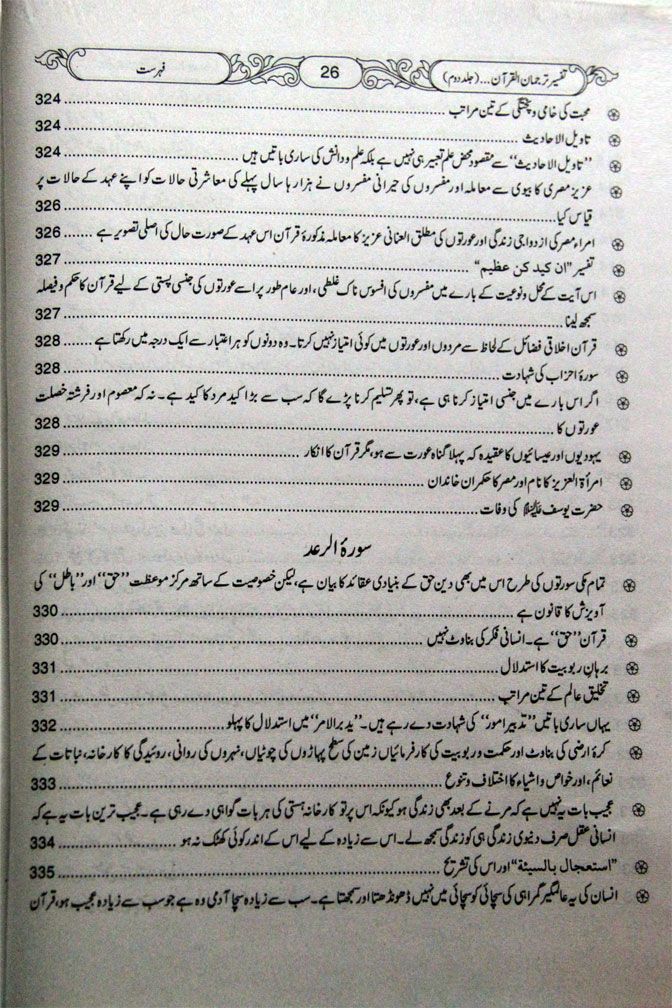 تفسیر ترجمان القرآن...(جلد دوم) 26 فہرست
محبت کی خامی و پختگی کے تین مراتب 324
تاویل الاحادیث 324
’’تاویل الاحادیث‘‘ سے مقصود محض علم تعبیر ہی نہیں ہے بلکہ علم و دانش کی ساری باتیں ہیں 324
عزیز مصری کا بیوی سے معاملہ اور مفسروں کی حیرانی مفسروں نے ہزارہا سال پہلے کی معاشرتی حالات کو اپنے عہد کے حالات پر
قیاس کیا 326
امراء مصر کی ازدواجی زندگی اور عورتوں کی مطلق العنانی عزیز کا معاملہ مذکورۂ قرآن اس عہد کے صورت حال کی اصلی تصویر ہے 326
تفسیر "ان کید کن عظیم" 327
اس آیت کے محل و نوعیت کے بارے میں مفسروں کی افسوس ناک غلطی، اور عام طور پر اسے عورتوں کی جنسی پستی کے لیے قرآن کا حکم و فیصلہ
سمجھ لینا 327
قرآن اخلاقی فضائل کے لحاظ سے مردوں اور عورتوں میں کوئی امتیاز نہیں کرتا۔ وہ دونوں کو ہر اعتبار سے ایک درجہ میں رکھتا ہے 328
سورۂ احزاب کی شہادت 328
اگر اس بارے میں جنسی امتیاز کرنا ہی ہے، تو پھر تسلیم کرنا پڑے گا کہ سب سے بڑا کید مرد کا کید ہے۔ نہ کہ معصوم اور فرشتہ خصلت
عورتوں کا 328
یہودیوں اور عیسائیوں کا عقیدہ کہ پہلا گناہ عورت سے ہو، مگر قرآن کا انکار 329
امرأة العزیز کا نام اور مصر کا حکمران خاندان 329
حضرت یوسف علیہ السلام کی وفات 329
سورۂ الرعد
تمام مکی سورتوں کی طرح اس میں بھی دین حق کے بنیادی عقائد کا بیان ہے، لیکن خصوصیت کے ساتھ مرکز موعظت ’’حق‘‘ اور ’’باطل‘‘ کی
آویزش کا قانون ہے 330
قرآن ’’حق‘‘ ہے۔ انسانی فکر کی بناوٹ نہیں 330
برہان ربوبیت کا استدلال 331
تخلیق عالم کے تین مراتب 331
یہاں ساری باتیں ’’تدبیر امور‘‘ کی شہادت دے رہے ہیں۔ ’’یدبر الامر‘‘ میں استدلال کا پہلو 332
کرۂ ارضی کی بناوٹ اور حکمت و ربوبیت کی کارفرمائیاں زمین کی سطح پہاڑوں کی چوٹیاں، نہروں کی روانی، روئیدگی کا کارخانہ، نباتات کے
نعائم، اور خواص و اشیاء کا اختلاف و تنوع 333
عجیب بات یہ نہیں ہے کہ مرنے کے بعد بھی زندگی ہو کیونکہ اس پر تو کارخانہ ہستی کی ہر بات گواہی دے رہی ہے۔ عجیب ترین بات یہ ہے کہ
انسانی عقل صرف دنیوی زندگی ہی کو زندگی سمجھ لے۔ اس سے زیادہ کے لیے اس کے اندر کوئی کھٹک نہ ہو 334
"استعجال بالسیئة" اور اس کی تشریح 335
انسان کی یہ عالمگیر گمراہی کی سچائی کو سچائی میں نہیں ڈھونڈھتا اور سمجھتا ہے۔ سب سے زیادہ سچا آدمی وہ ہے جو سب سے زیادہ عجیب ہو، قرآن